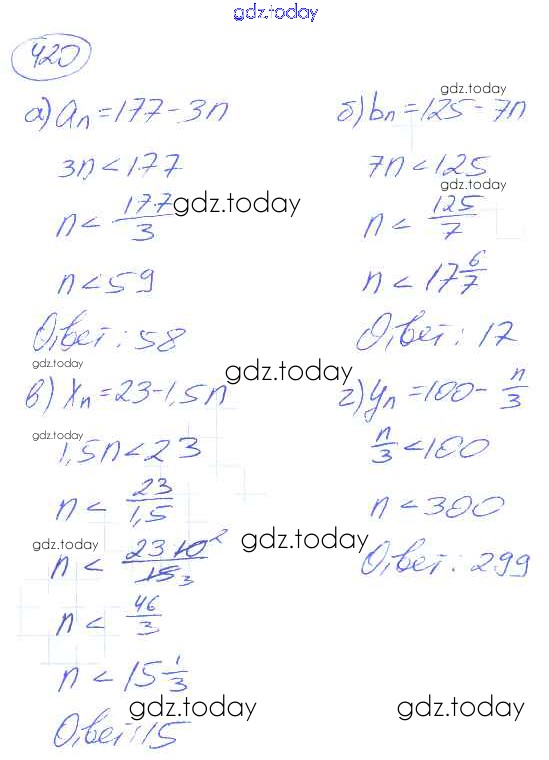 gdz.today
420
а) aₙ = 177 - 3n
3n < 177
n < 177/3
n < 59
Ответ: 58
б) bₙ = 125 - 7n
7n < 125
n < 125/7
n < 17 6/7
Ответ: 17
в) xₙ = 23 - 1,5n
1,5n < 23
n < 23/1,5
n < 23 10 2/15 3
n < 46/3
n < 15 1/3
Ответ: 15
г) yₙ = 100 - n/3
n/3 < 100
n < 300
Ответ: 299
gdz.today
gdz.today
gdz.today
gdz.today
gdz.today
gdz.today
gdz.today
gdz.today
gdz.today
gdz.today